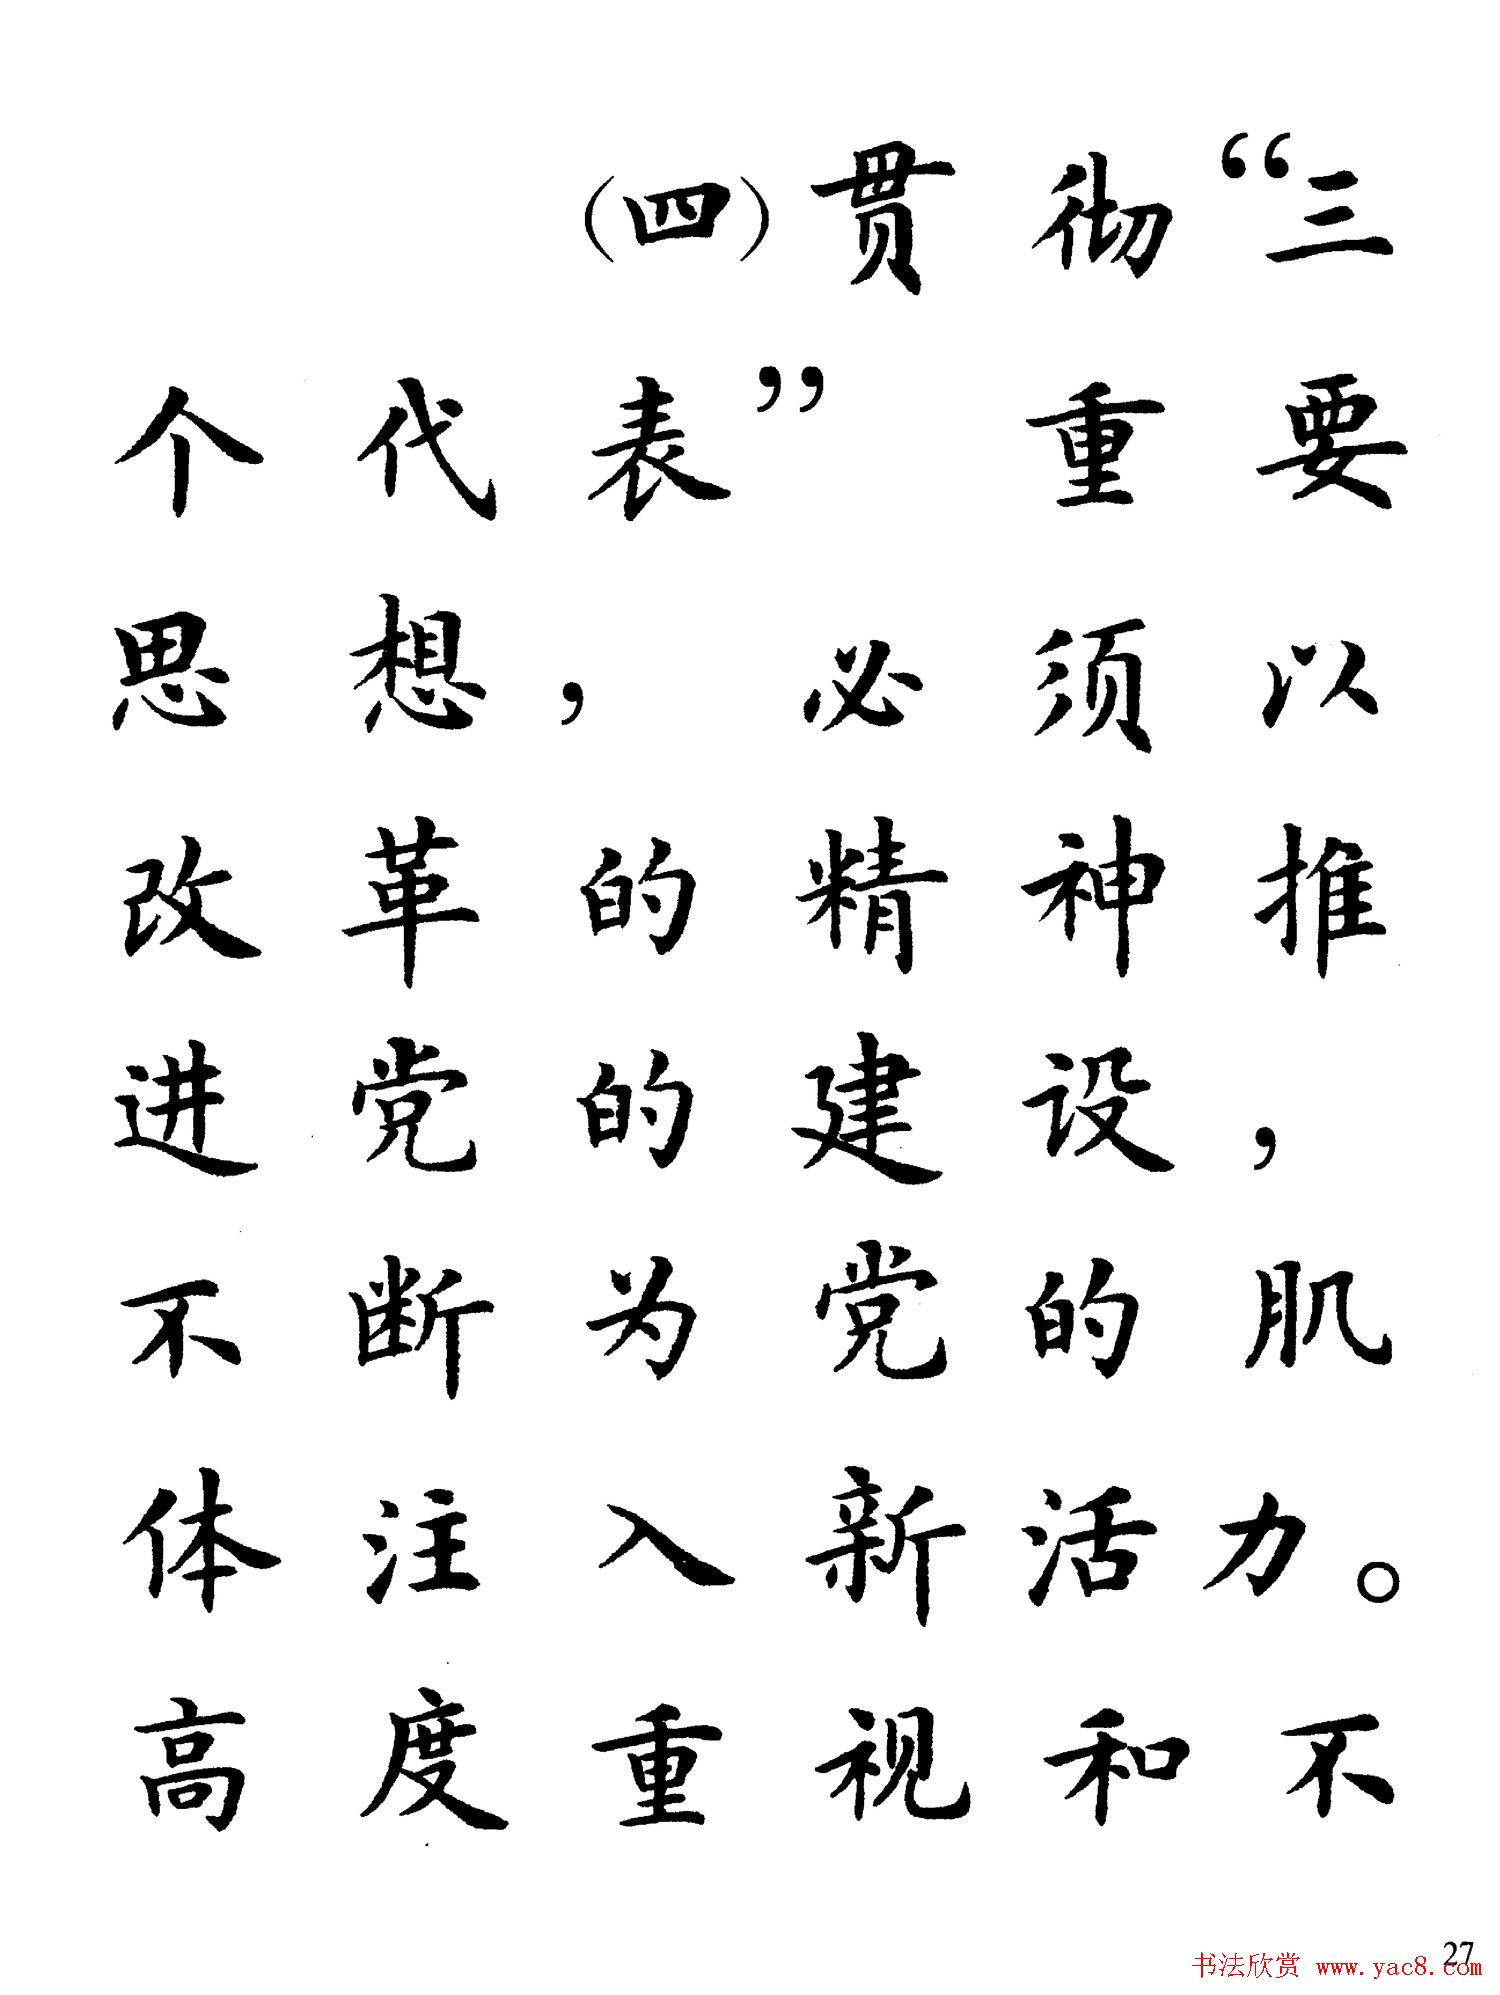 (四)贯彻“三
个代表”重要
思想，必须以
改革的精神推
进党的建设，
不断为党的肌
体注入新活力。
高度重视和不
27
书法欣赏 www.yac8.com